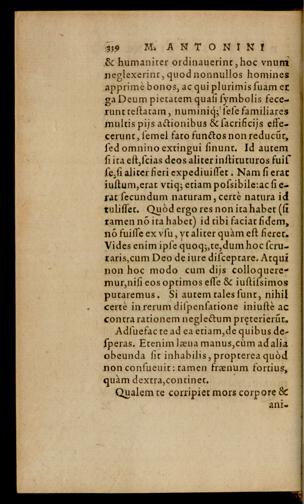 339 M. ANTONINI
& humaniter ordinauerint, hoc vnum
neglexerint, quod nonnullos homines
apprimè bonos, ac qui plurimis suam er
ga Deum pietatem quasi symbolis fece-
runt testatam, numiniq́; sese familiares
multis pijs actionibus & sacrificijs effe-
cerunt, semel fato functos non reducūt,
sed omnino extingui sinunt. Id autem
si ita est, scias deos aliter instituturos fuis
se, si aliter fieri expediuisset. Nam si erat
iustum, erat vtiq; etiam possibile: ac si e-
rat secundum naturam, certè natura id
tulisset. Quòd ergo res non ita habet (si
tamen nō ita habet) id tibi faciat fidem,
nō fuisse ex vsu, vt aliter quàm est fieret.
Vides enim ipse quoq;, te, dum hoc scru-
taris, cum Deo de iure disceptare. Atqui
non hoc modo cum dijs colloquere-
mur, nisi eos optimos esse & iustissimos
putaremus. Si autem tales sunt, nihil
certè in rerum dispensatione iniustè ac
contra rationem neglectum pręterierūt.
Adsuefac te ad ea etiam, de quibus de-
speras. Etenim læua manus, cùm ad alia
obeunda sit inhabilis, propterea quòd
non consueuit: tamen frænum fortius,
quàm dextra, continet.
Qualem te corripiet mors corpore &
ani-